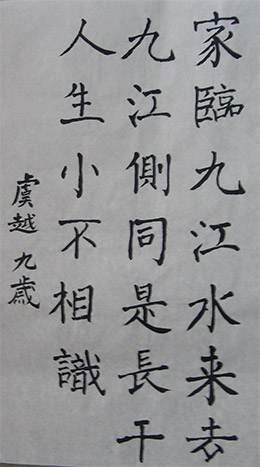 家臨九江水来去
九江側同是長干
人生小不相識
虞越九歲